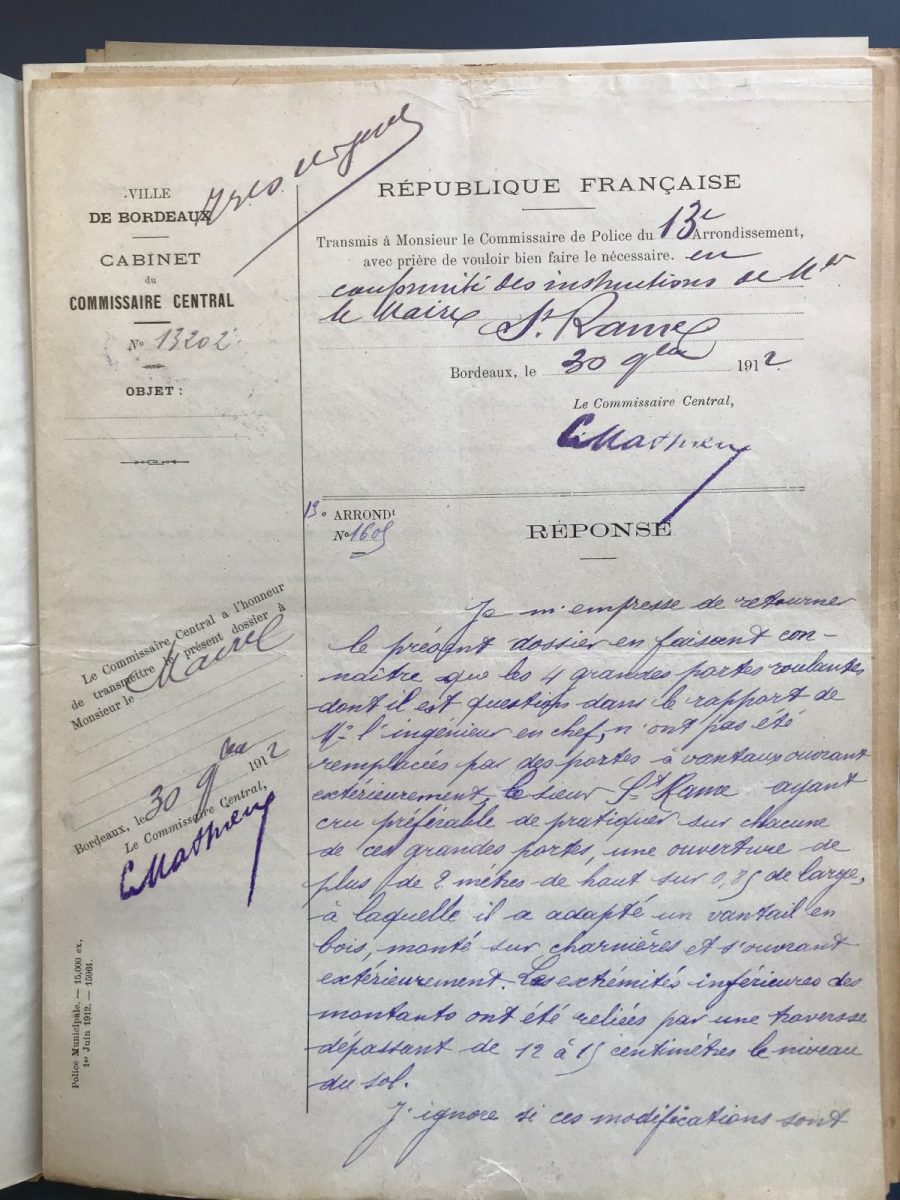 Très urgent
VILLE
DE BORDEAUX
CABINET
du
COMMISSAIRE CENTRAL
No 13202
OBJET :
RÉPUBLIQUE FRANÇAISE
Transmis à Monsieur le Commissaire de Police du 13e Arrondissement,
avec prière de vouloir bien faire le nécessaire. en
conformité des instructions de Mr
le Maire St. Rame
Bordeaux, le 30 9bre 1912.
Le Commissaire Central,
C. Mathieu
13e ARRONDt
No 1605
RÉPONSE
Je m'empresse de retourner
le présent dossier en faisant con-
naître que les 4 grandes portes roulantes
dont il est question dans le rapport de
Mr. l'ingénieur en chef, n'ont pas été
remplacées par des portes à vantaux ouvrant
extérieurement, le sieur St. Rame ayant
cru préférable de pratiquer sur chacune
de ces grandes portes, une ouverture de
plus de 2 mètres de haut sur 0,85 de large,
à laquelle il a adapté un vantail en
bois, monté sur charnières et s'ouvrant
extérieurement. Les extrémités inférieures des
montants ont été reliées par une traverse
dépassant de 12 à 15 centimètres le niveau
du sol.
J'ignore si ces modifications sont
Le Commissaire Central a l'honneur
de transmettre le présent dossier à
Monsieur le Maire
Bordeaux, le 30 9bre 1912
Le Commissaire Central,
C. Mathieu
Police Municipale. — 15,000 ex.
1er Juin 1912. — 15061.